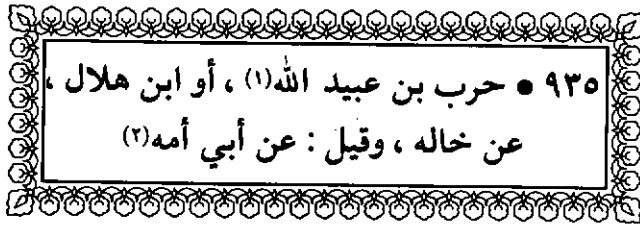 ٩٣٥ • حرب بن عبيد الله(١) ، أو ابن هلال ،
عن خاله ، وقيل : عن أبي أمه(٢)